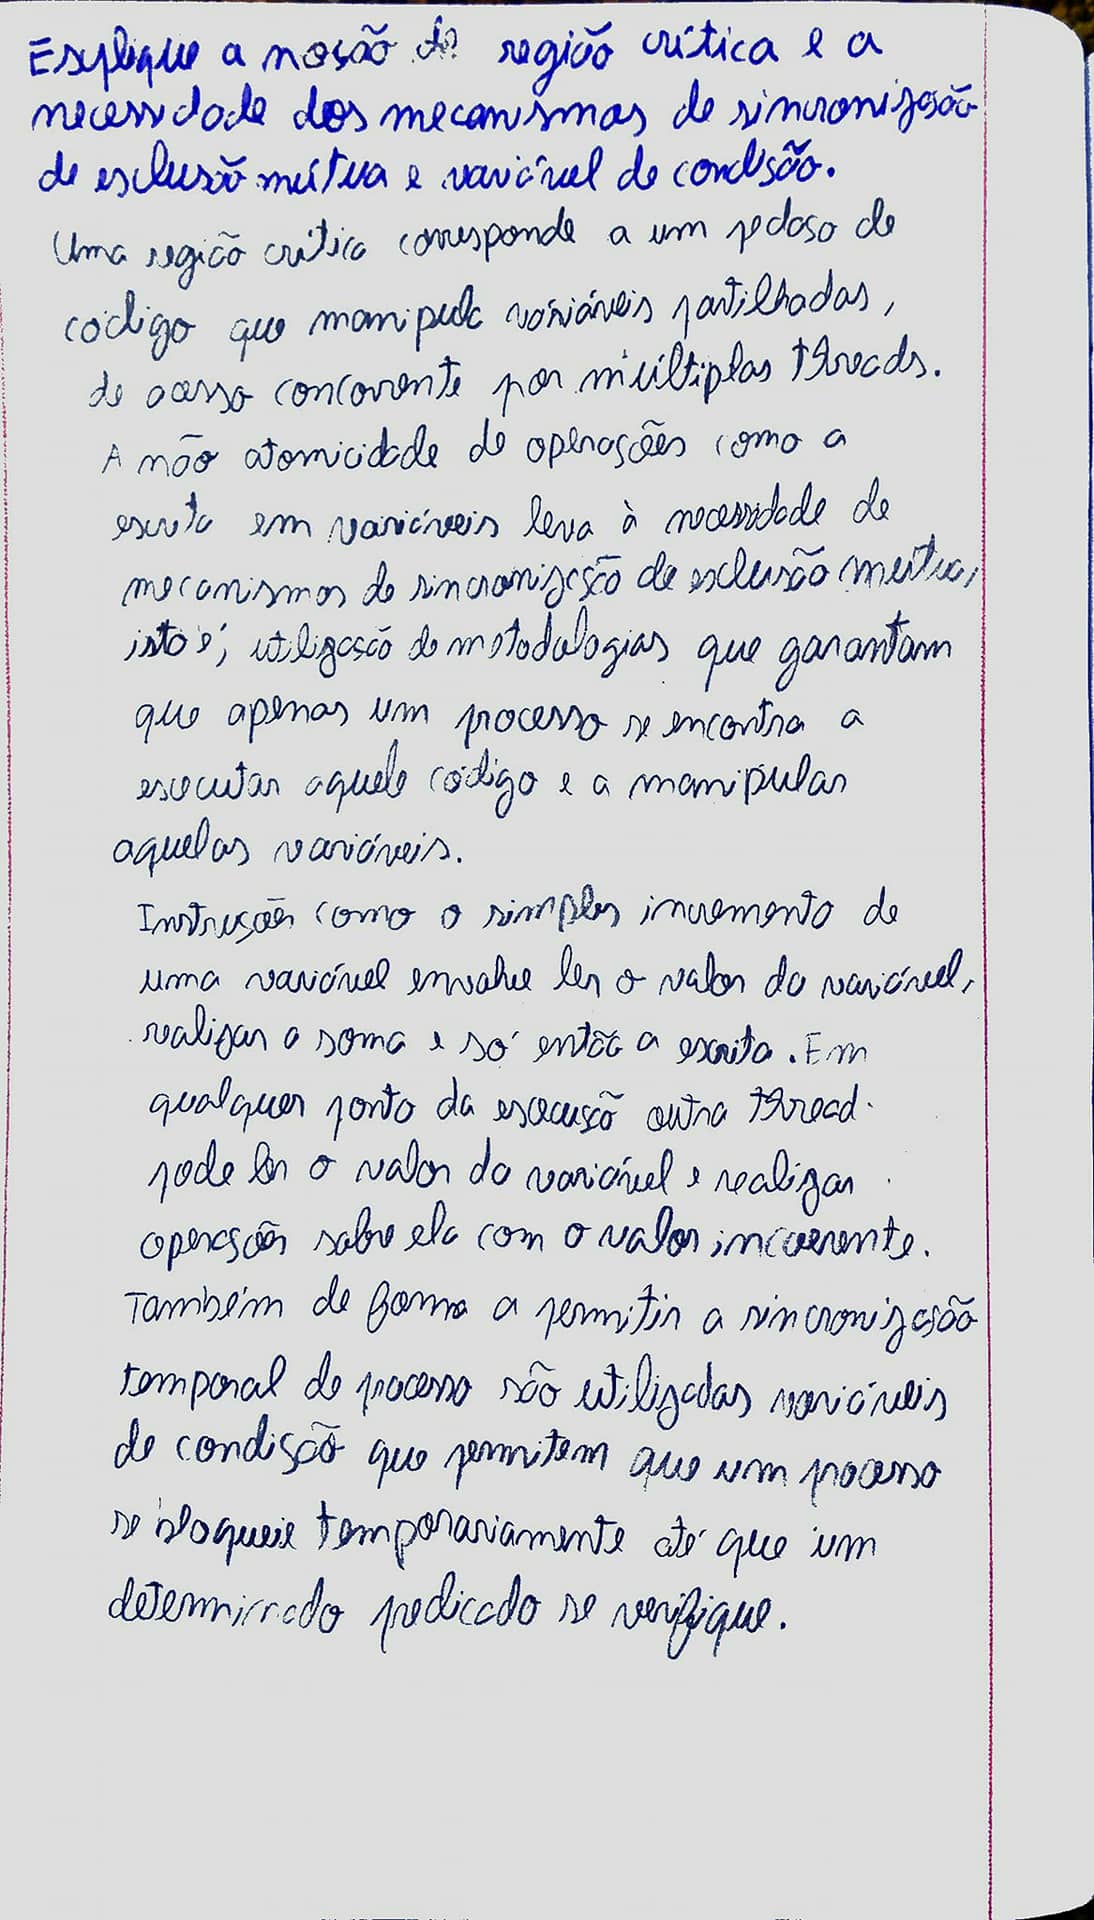 Explique a noção de região crítica e a
necessidade dos mecanismos de sincronização
de exclusão mútua e variável de condição.
Uma região crítica corresponde a um pedaço de
código que manipula variáveis partilhadas,
de acesso concorrente por múltiplas threads.
A não atomicidade de operações como a
escrita em variáveis leva à necessidade de
mecanismos de sincronização de exclusão mútua,
isto é, utilização de metodologias que garantam
que apenas um processo se encontra a
executar aquele código e a manipular
aquelas variáveis.
Instruções como o simples incremento de
uma variável envolve ler o valor da variável,
realizar a soma e só então a escrita. Em
qualquer ponto da execução outra thread
pode ler o valor da variável e realizar
operações sobre ela com o valor incoerente.
Também de forma a permitir a sincronização
temporal de processo são utilizadas variáveis
de condição que permitem que um processo
se bloqueie temporariamente até que um
determinado predicado se verifique.